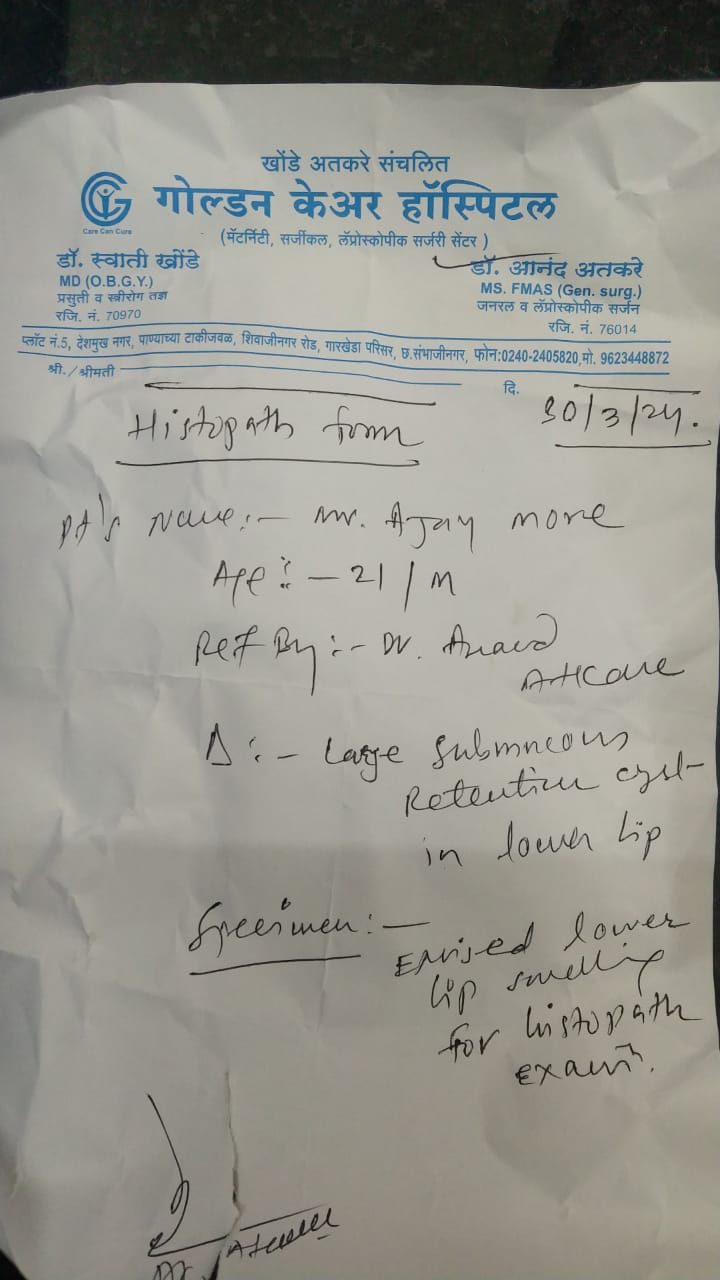 खोंडे अतकरे संचलित
गोल्डन केअर हॉस्पिटल
Care Can Cure
(मॅटर्निटी, सर्जीकल, लॅप्रोस्कोपीक सर्जरी सेंटर)
डॉ. स्वाती खोंडे
MD (O.B.G.Y.)
प्रसुती व स्त्रीरोग तज्ञ
रजि. नं. 70970
डॉ. आनंद अतकरे
MS. FMAS (Gen. surg.)
जनरल व लॅप्रोस्कोपीक सर्जन
रजि. नं. 76014
प्लॉट नं.5, देशमुख नगर, पाण्याच्या टाकीजवळ, शिवाजीनगर रोड, गारखेडा परिसर, छ.संभाजीनगर, फोन:0240-2405820,मो. 9623448872
श्री./श्रीमती
दि. 30/3/24.
Histopath form
Pt's Name:- Mr. Ajay more
Age:- 21/M
Ref By:- Dr. Anand
Atkare
Δ:- Large submucous
Retention cyst
in lower lip
Specimen:-
Exised lower
lip swelling
for histopath
examn.
Dr. Atkare